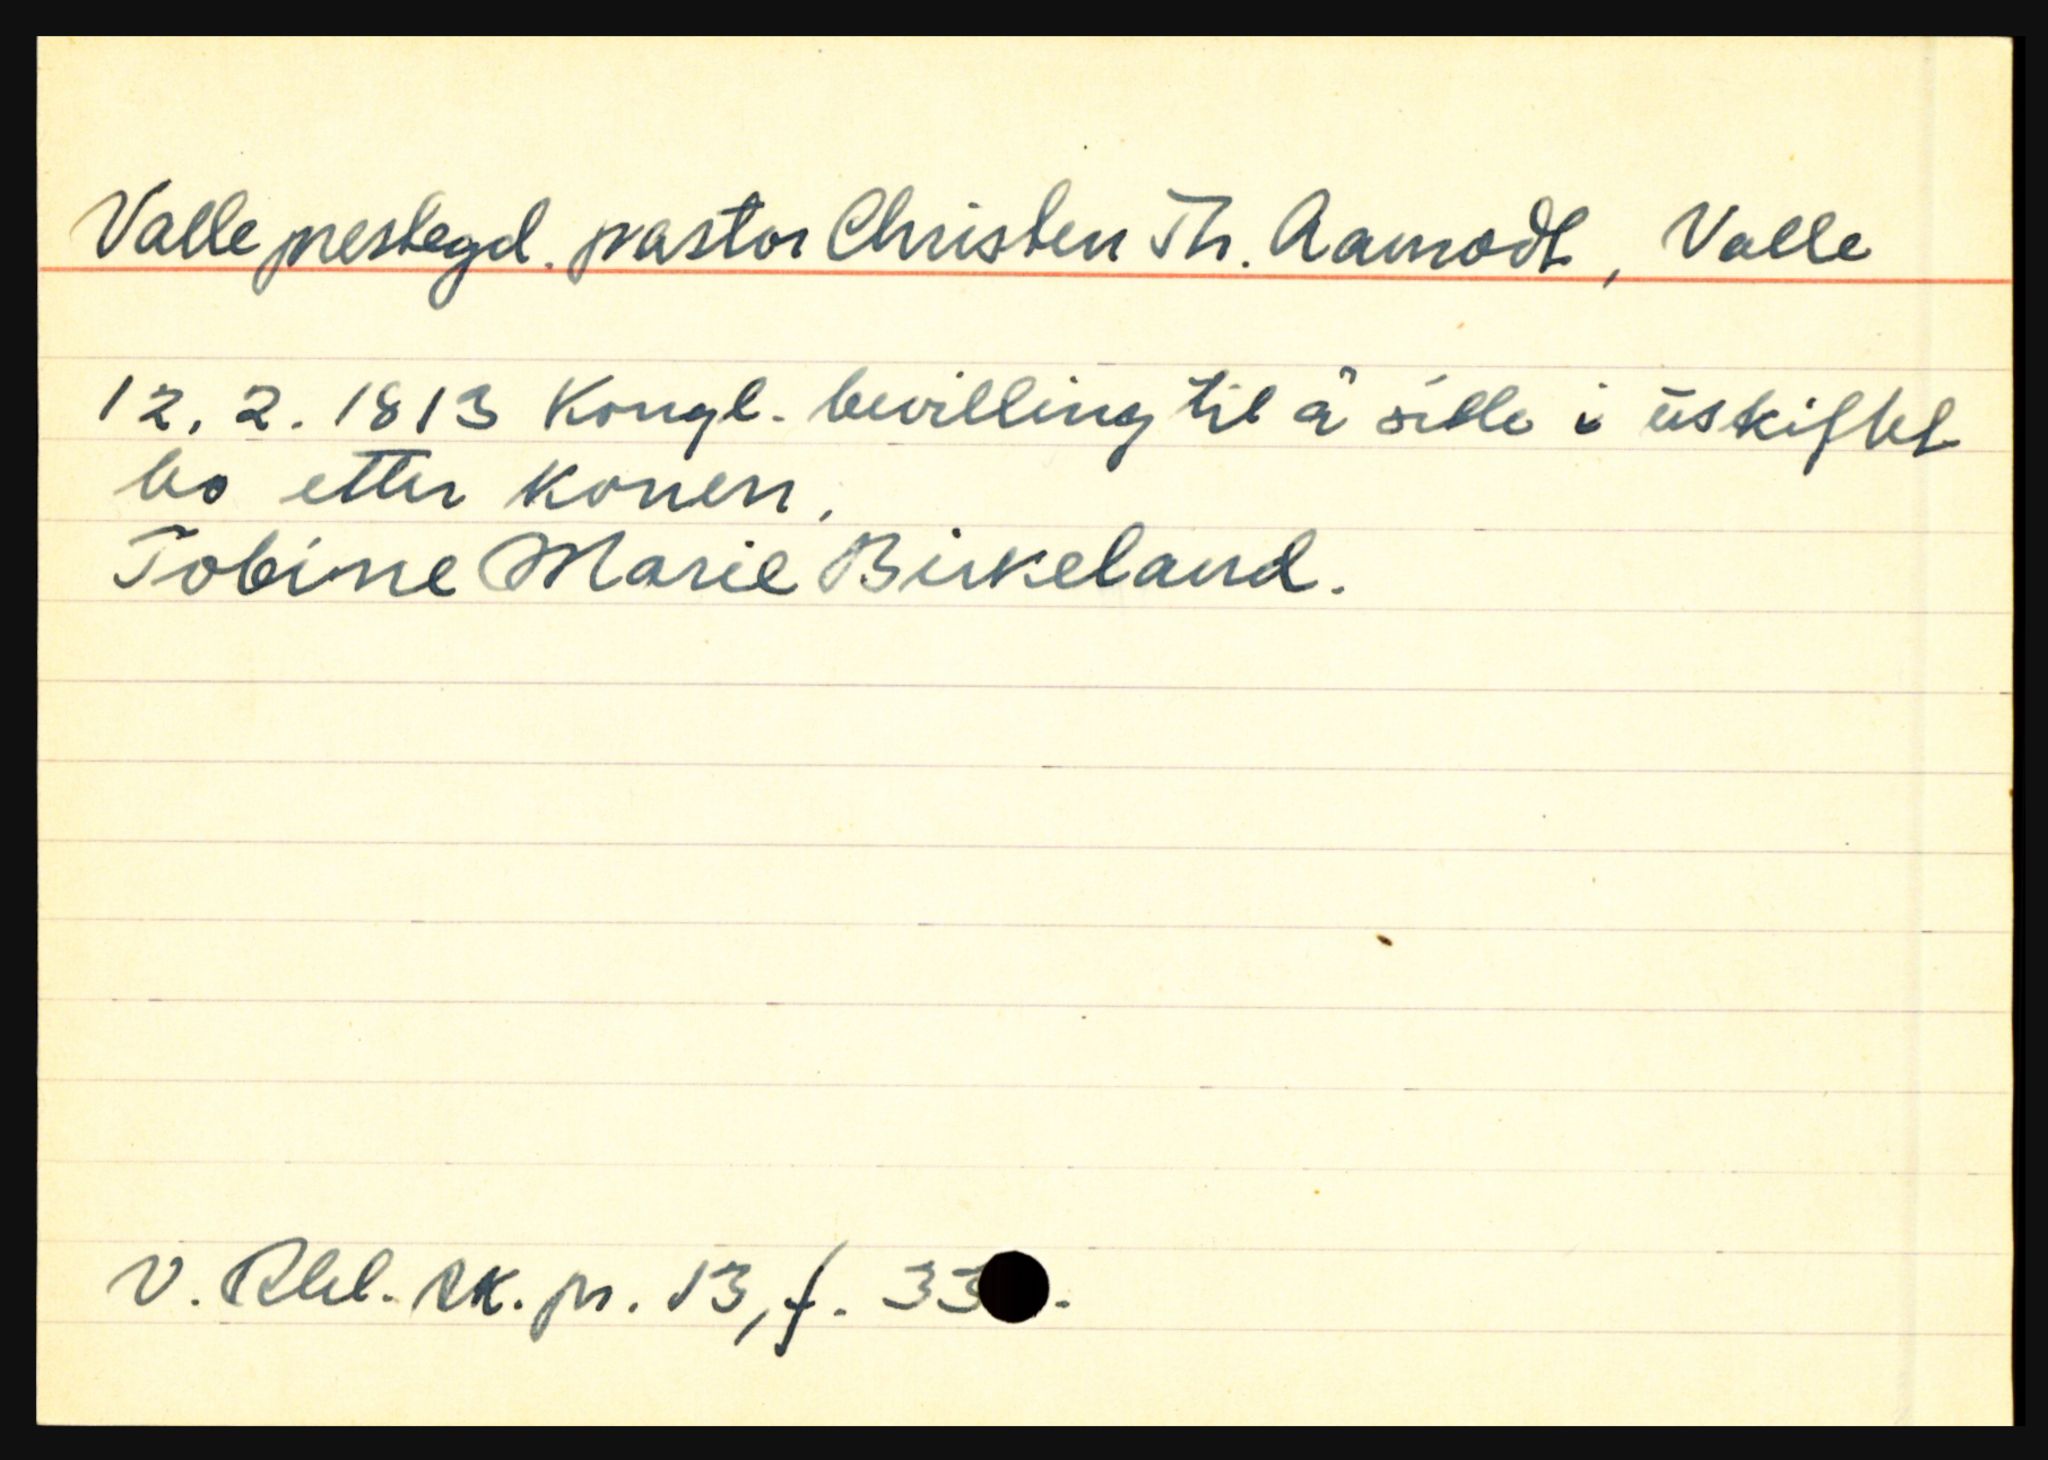 Valle prestegd. pastor Christen Th. Aamodt, Valle
12.2.1813 Kongl. bevilling til å sitte i uskiftet
bo etter konen,
Tobine Marie Birkeland.
V. Rbl. sk. pr. 13, f. 33